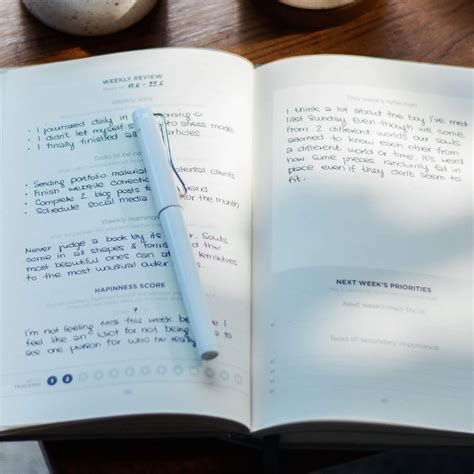 WEEKLY REVIEW
Weekly wins
• I journaled daily in
• I didn't let myself stress mode
• I finally finished all articles
Tasks to be
• Sending portfolio material potential clients
• Finish website
• Complete 2 blog posts for the month
• Schedule social media
Weekly learnings
Never judge a book by its Souls
come in all shapes & forms and the
most beautiful ones can
to the most unusual
HAPINNESS SCORE
?
I'm not feeling this week because I
feel like an idiot for not being to
see one person for who he really
1 2
This week's reflection
I think a lot about the boy I've met
last Sunday. Even though we come
from 2 different worlds our souls
seemed to know each other from
a different world or time. It's weird
how some pieces randomly fall in
place even if they don't seem to
fit.
NEXT WEEK'S PRIORITIES
Next week's main focus
Tasks of secondary importance